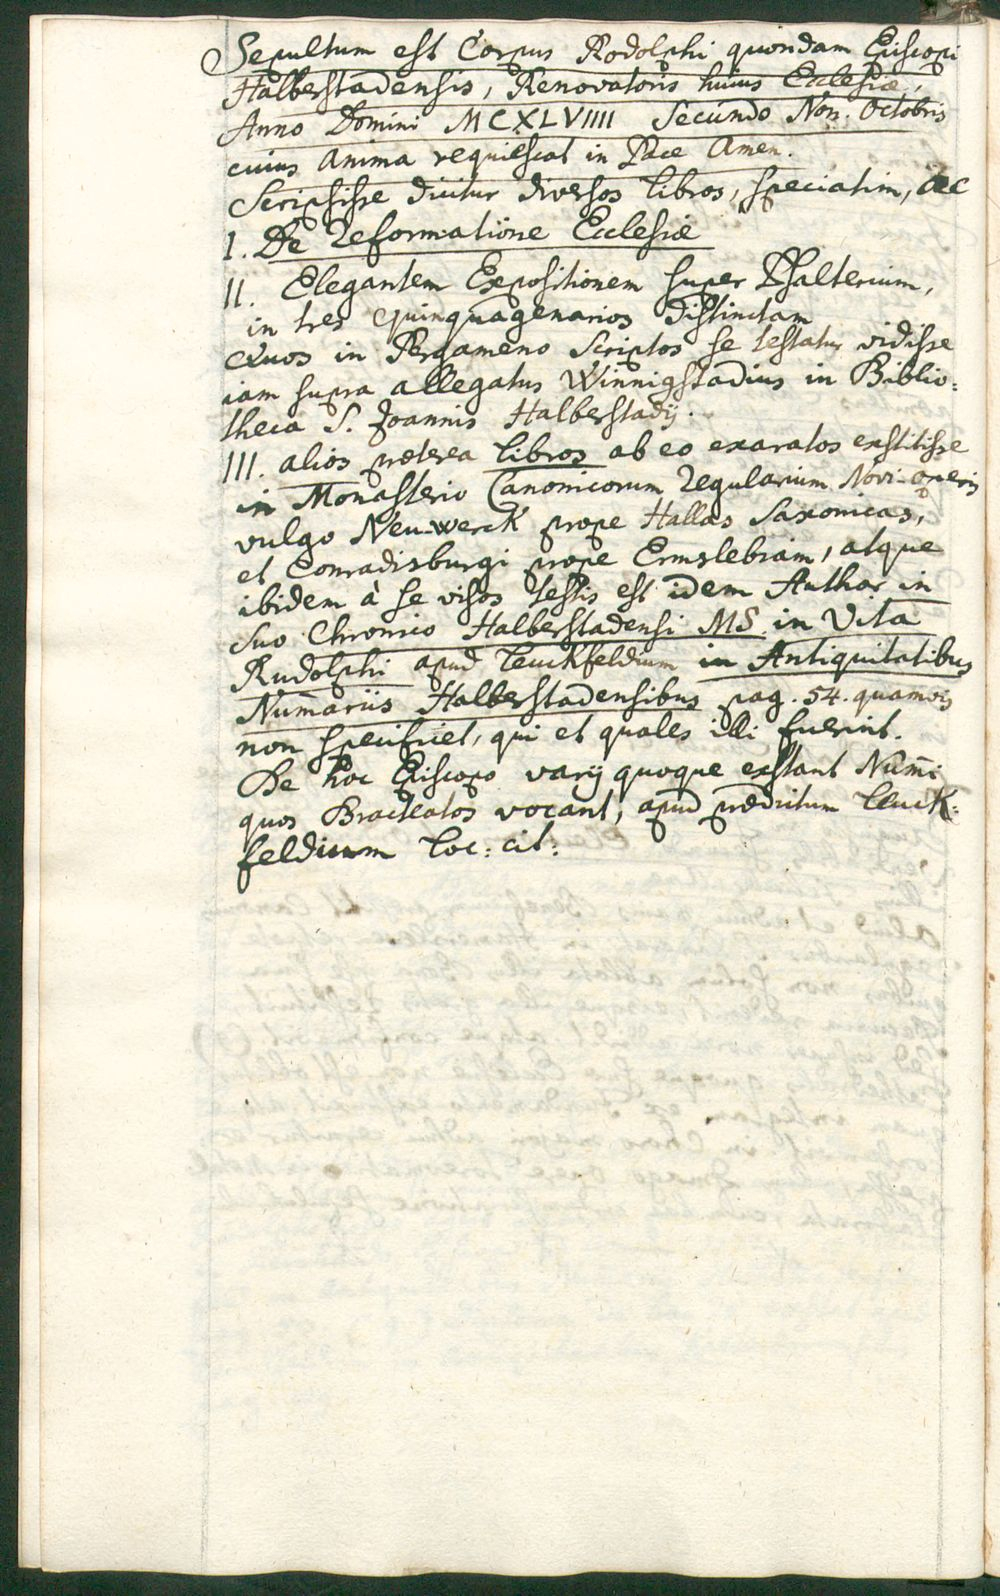 Sepultum est Corpus Rodolphi quondam Episcopi
Halberstadensis, Renovatoris huius Ecclesiæ,
Anno Domini MCXLVIIII Secundo Non. Octobris
cuius anima requiescat in Pace Amen.
Scripsisse dicitur diversos libros, speciatim, ac
I. De Reformatione Ecclesiæ
II. Elegantem Expositionem super Psalterium,
in tres quinquagenarios distinctam
Quos in Pergameno Scriptos se testatur vidisse
iam supra allegatus Winnigstadius in Biblio:
theca S. Joannis Halberstadij.
III. alios præterea libros ab eo exaratos exstitisse
in Monasterio Canonicorum Regularium Novi-operis
vulgo Neu-werck prope Hallas Saxonicas,
et Conradisburgi prope Ermslebiam, atque
ibidem à se visos testis est idem Author in
suo Chronico Halberstadensi MS. in Vita
Rudolphi apud Leuckfeldium in Antiquitatibus
Numariis Halberstadensibus pag. 54. quamvis
non specificet, qui et quales illi fuerint.
De hoc Episcopo varij quoque exstant Num̄i
quos Bracteatos vocant, apud prædictum Leuck:
feldium loc: cit: